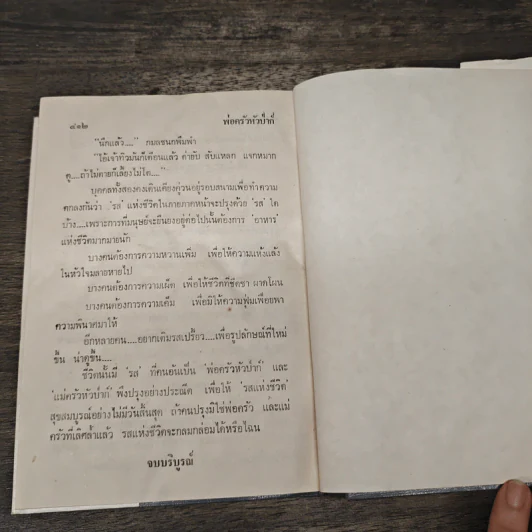 ๔๑๒ พ่อครัวหัวป่าก์
"นึกแล้ว...." กมลชนกพึมพำ
"ไอ้เจ้าทิวมันก็เตือนแล้ว
ดู....ถ้าไม่ตายก็เลี้ยงไม่โต...."
บุคคลทั้งสองคงเดินเคียงคู่วนอยู่รอบสนามเพื่อทำความ
ตกลงกันว่า 'รส' แห่งชีวิตในภายภาคหน้าจะปรุงด้วย 'รส' ใด
บ้าง....เพราะการที่มนุษย์จะยืนยงอยู่ต่อไปนั้นต้องการ 'อาหาร'
แห่งชีวิตมากมายนัก
บางคนต้องการความหวานเพิ่ม เพื่อให้ความแห้งแล้ง
ในหัวใจมลายหายไป
บางคนต้องการความเผ็ด เพื่อให้ชีวิตที่ชืดชา ผาดโผน
บางคนต้องการความเค็ม เพื่อมิให้ความฟุ่มเฟือยพา
ความพินาศมาให้
อีกหลายคน....อยากเติมรสเปรี้ยว....เพื่อรูปลักษณ์ที่ใหม่
ขึ้น น่าดูขึ้น....
ชีวิตนั้นมี 'รส' ที่คนอันเป็น 'พ่อครัวหัวป่าก์' และ
'แม่ครัวหัวป่าก์' พึงปรุงอย่างประณีต เพื่อให้ 'รสแห่งชีวิต'
สุขสมบูรณ์อย่างไม่มีวันสิ้นสุด ถ้าคนปรุงมิใช่พ่อครัว และแม่
ครัวที่เลิศล้ำแล้ว รสแห่งชีวิตจะกลมกล่อมได้หรือไฉน
จบบริบูรณ์